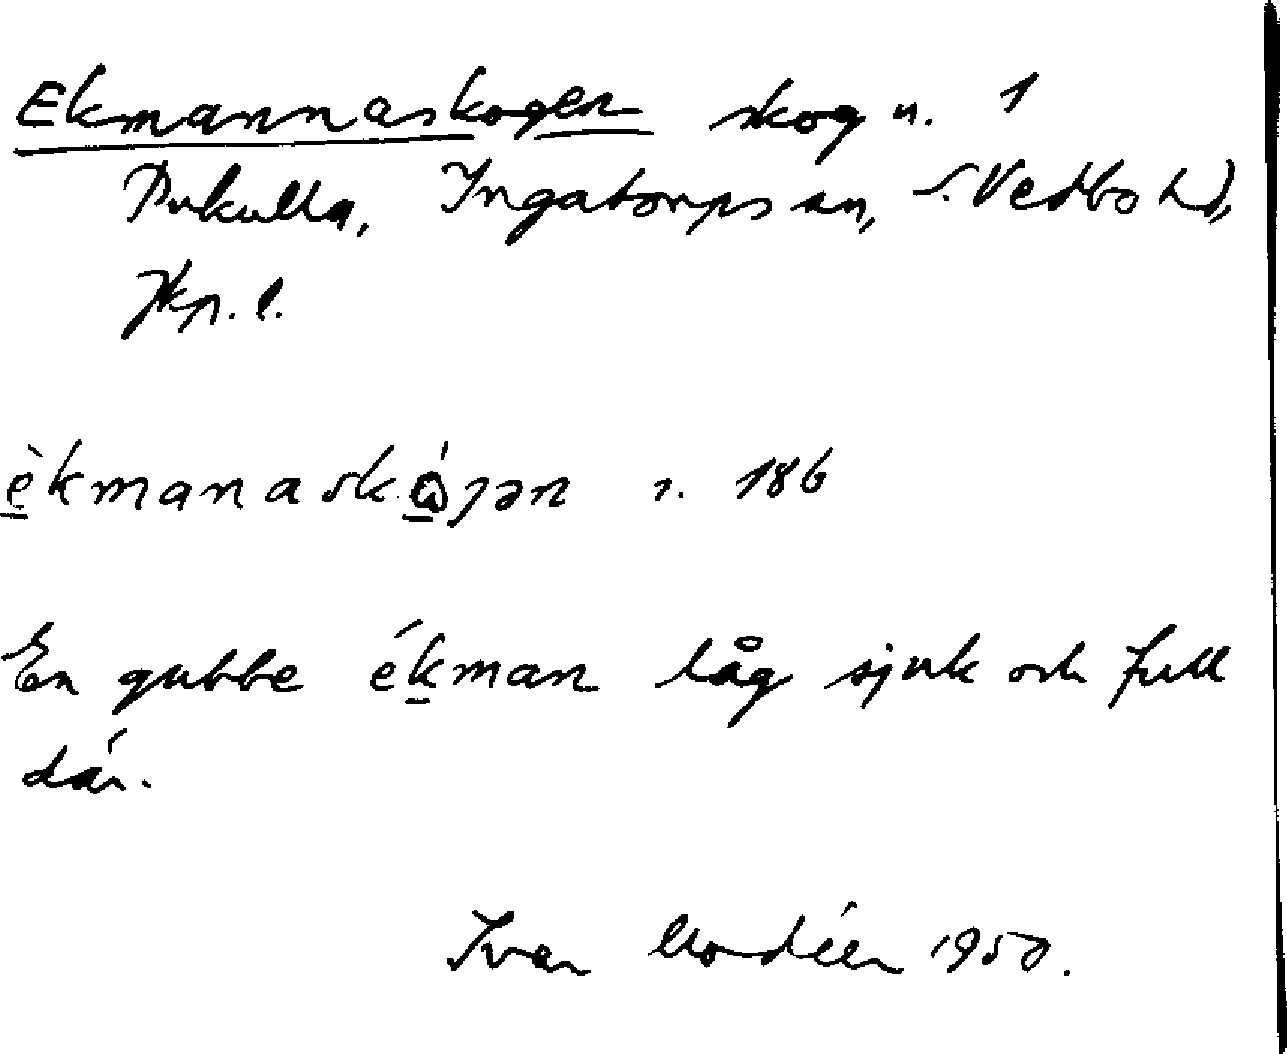 Ekmannaskogen skog u. 1
Pukulla, Ingatorps sn, S. Vedbo hd,
Jkp. l.
èkmanaskógən r. 186
En gubbe ékman låg sjuk och full
där.
Ivar Modéer 1950.